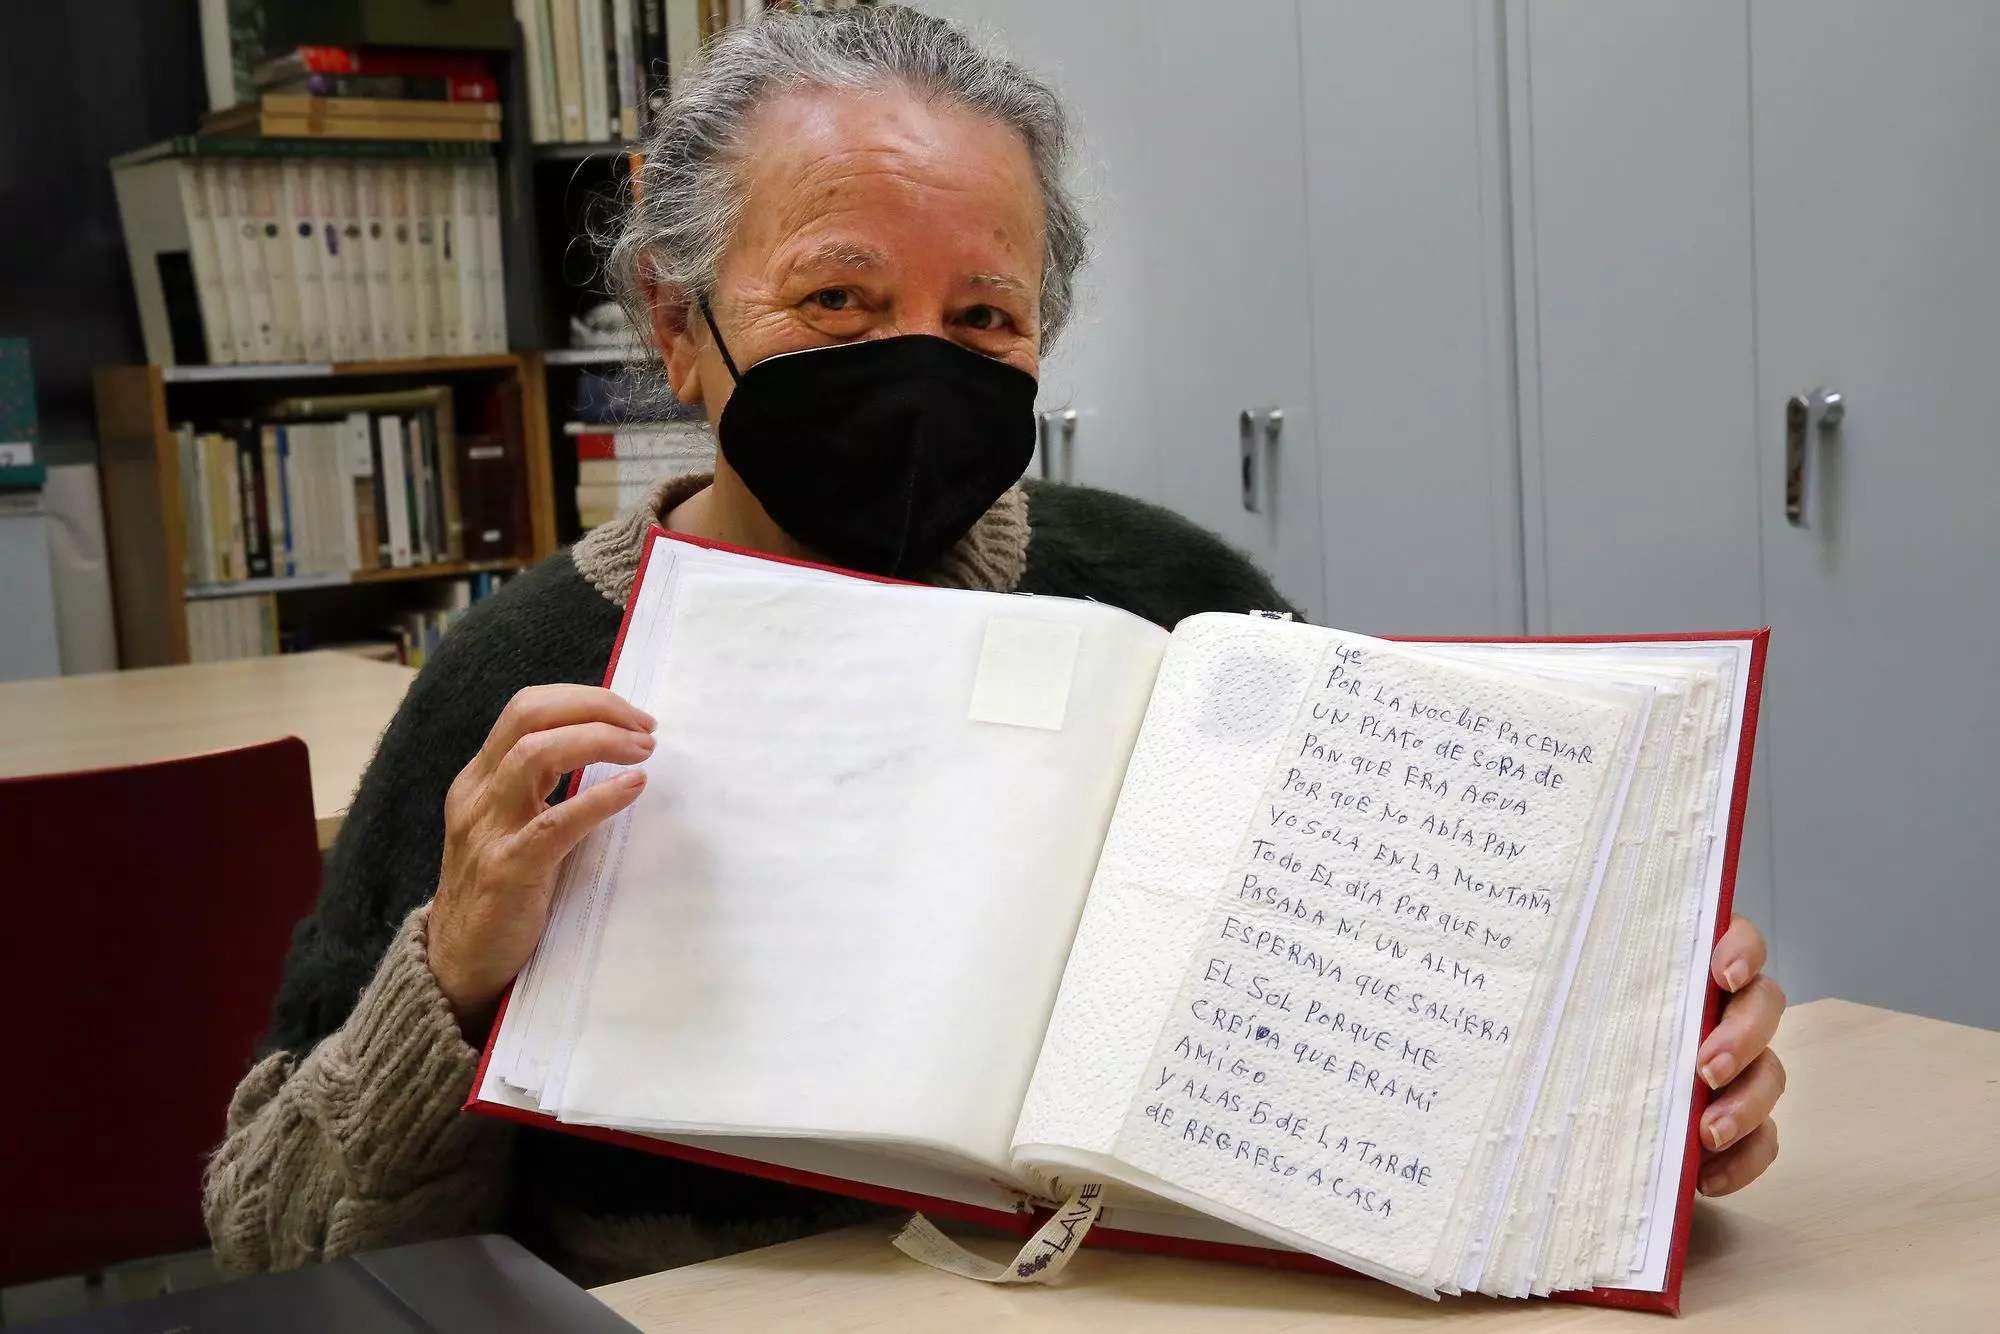 4º
POR LA NOCHE PACENAR
UN PLATO dE SOPA dE
PAN QUE ERA AGUA
POR QUE NO ABÍA PAN
YO SOLA EN LA MONTAÑA
TOdO EL dÍA POR QUE NO
PASABA NI UN ALMA
ESPERAVA QUE SALIERA
EL SOL PORQUE ME
CREÍA QUE ERA MI
AMIGO
Y ALAS 5 dE LA TARdE
dE REGRESO A CASA
LAVE